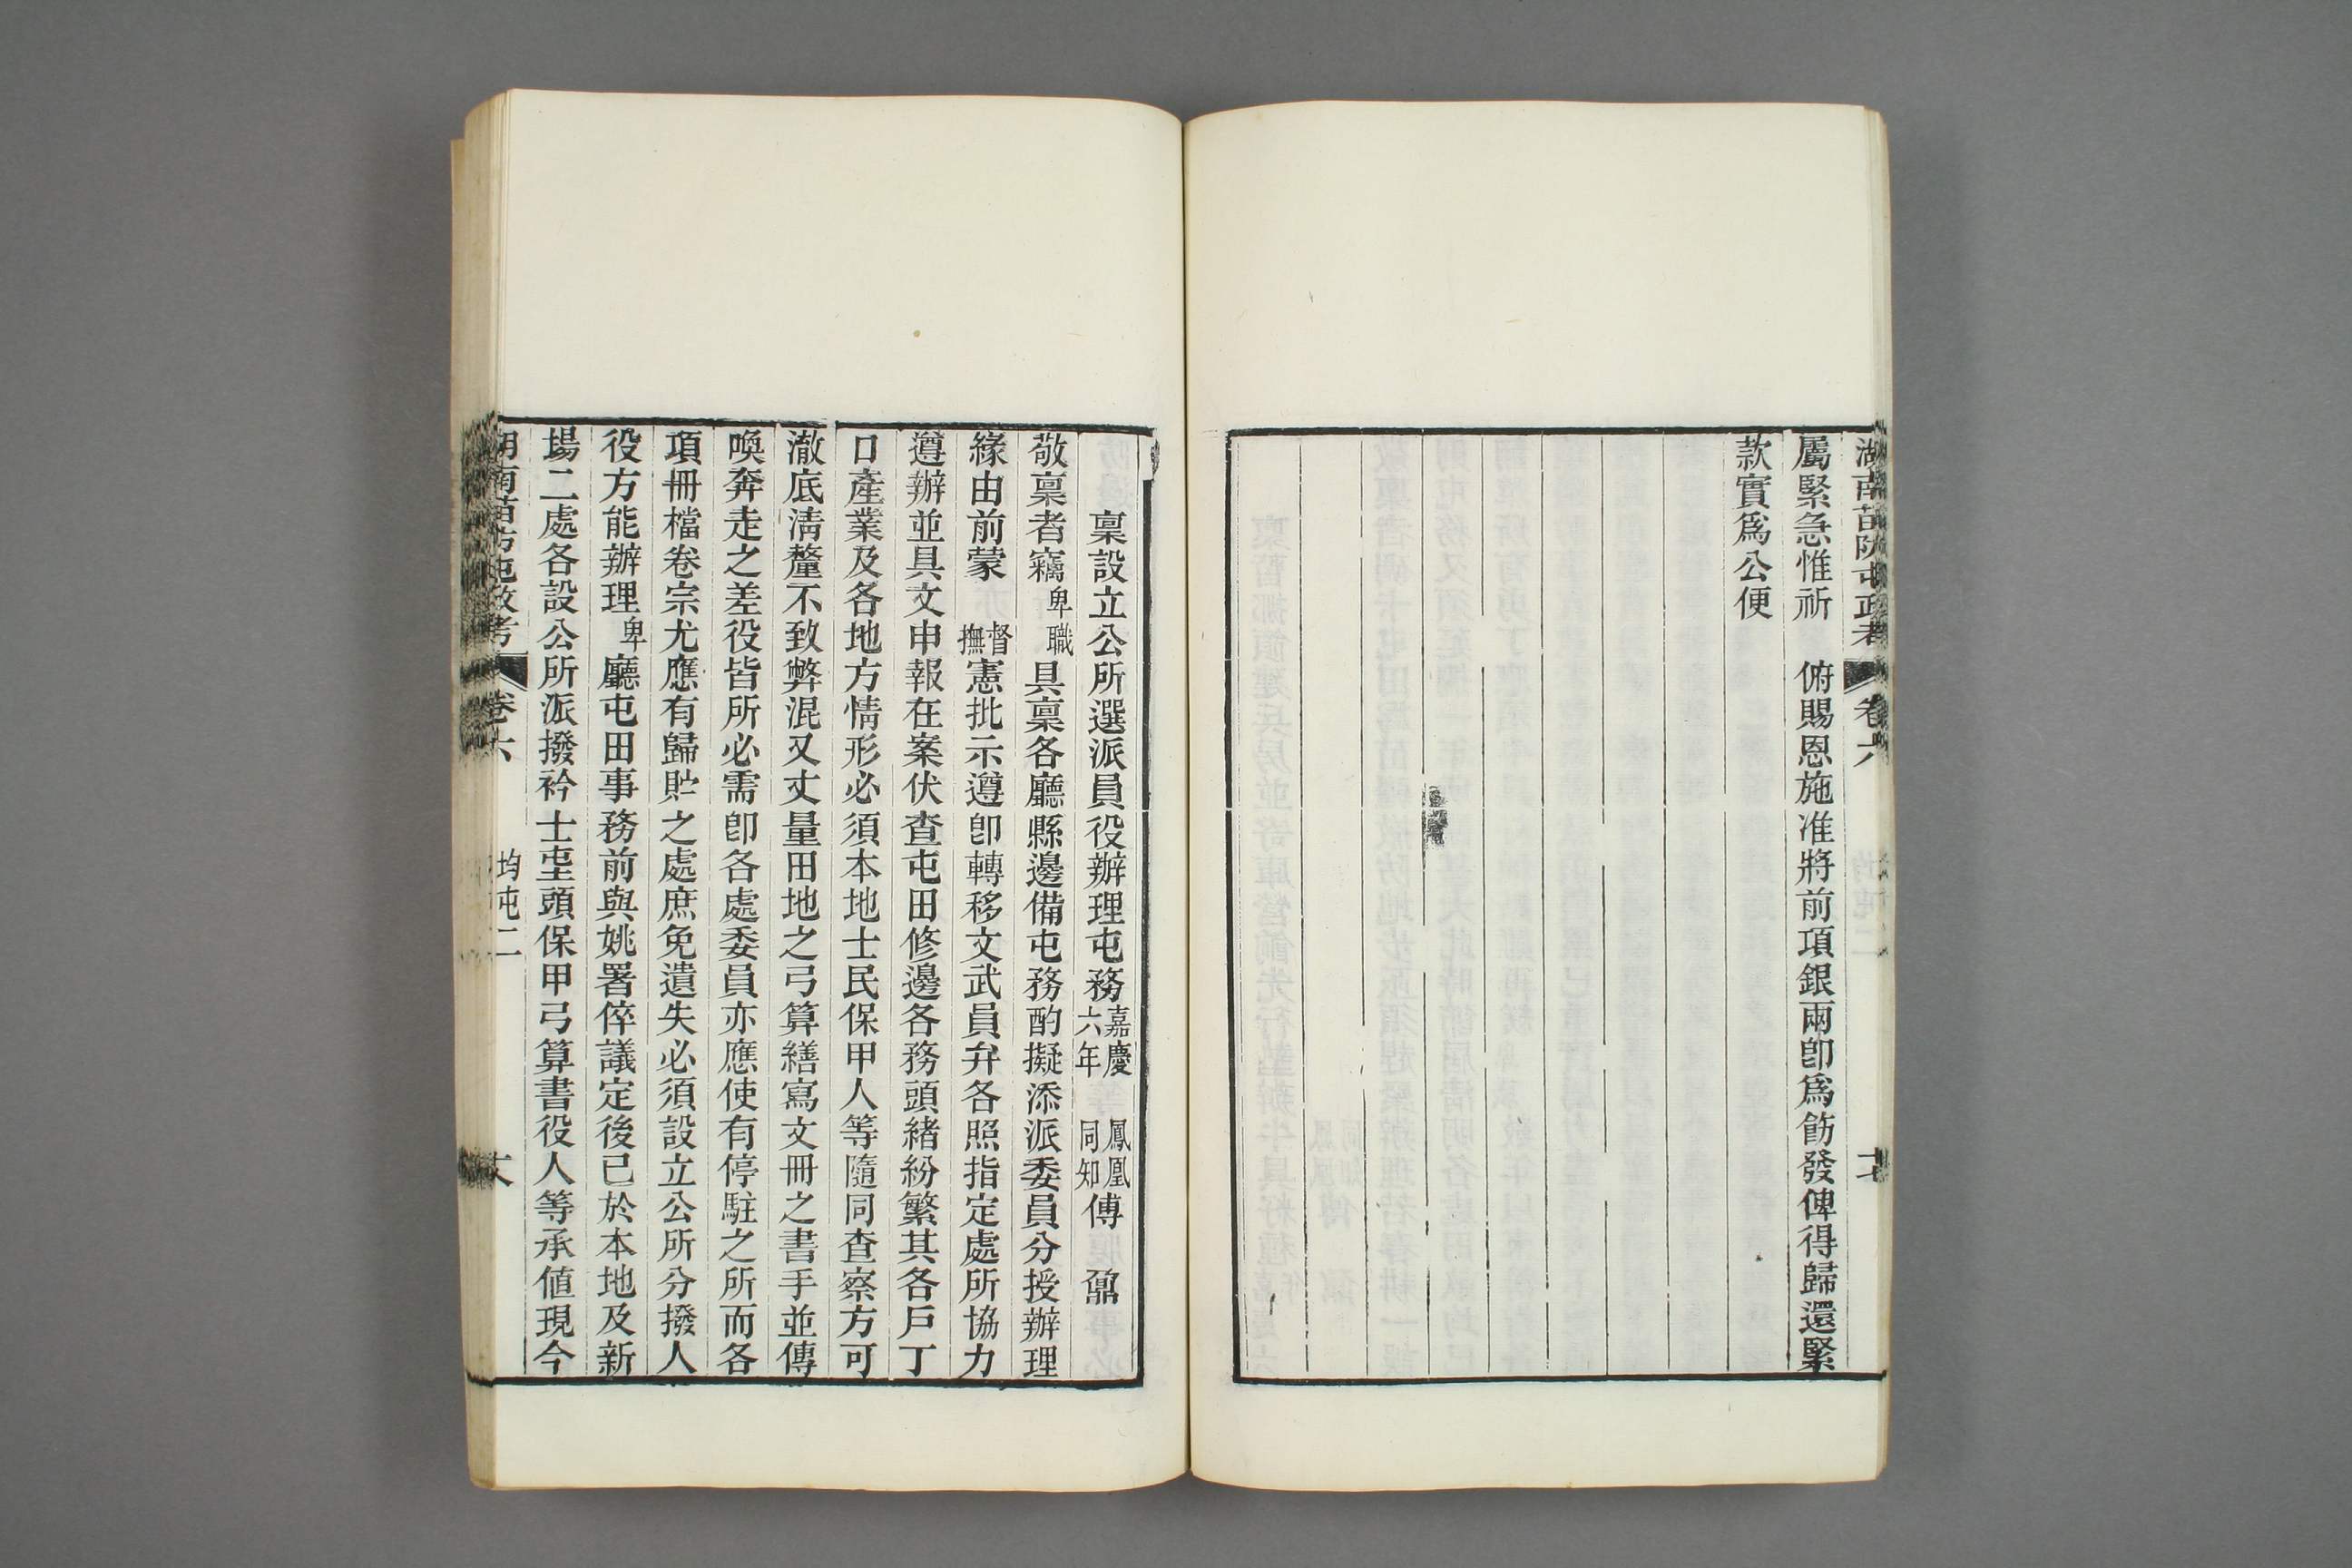 湖南苗防屯政考 卷六 十七
屬緊急惟祈 俯賜恩施准將前項銀兩卽爲飭發俾得歸還緊
款實爲公便
稟設立公所選派員役辦理屯務嘉慶六年 鳳凰同知傅 鼐
敬稟者竊卑職具稟各廳縣邊備屯務酌擬添派委員分授辦理
緣由前蒙 督撫憲批示遵卽轉移文武員弁各照指定處所協力
遵辦並具文申報在案伏查屯田修邊各務頭緒紛繁其各戶丁
口產業及各地方情形必須本地士民保甲人等隨同查察方可
澈底淸釐不致弊混又丈量田地之弓算繕寫文冊之書手並傳
喚奔走之差役皆所必需卽各處委員亦應使有停駐之所而各
項冊檔卷宗尤應有歸貯之處庶免遺失必須設立公所分撥人
役方能辦理卑廳屯田事務前與姚署倅議定後已於本地及新
場二處各設公所派撥衿士屯頭保甲弓算書役人等承値現今
湖南苗防屯政考 卷六 均屯二